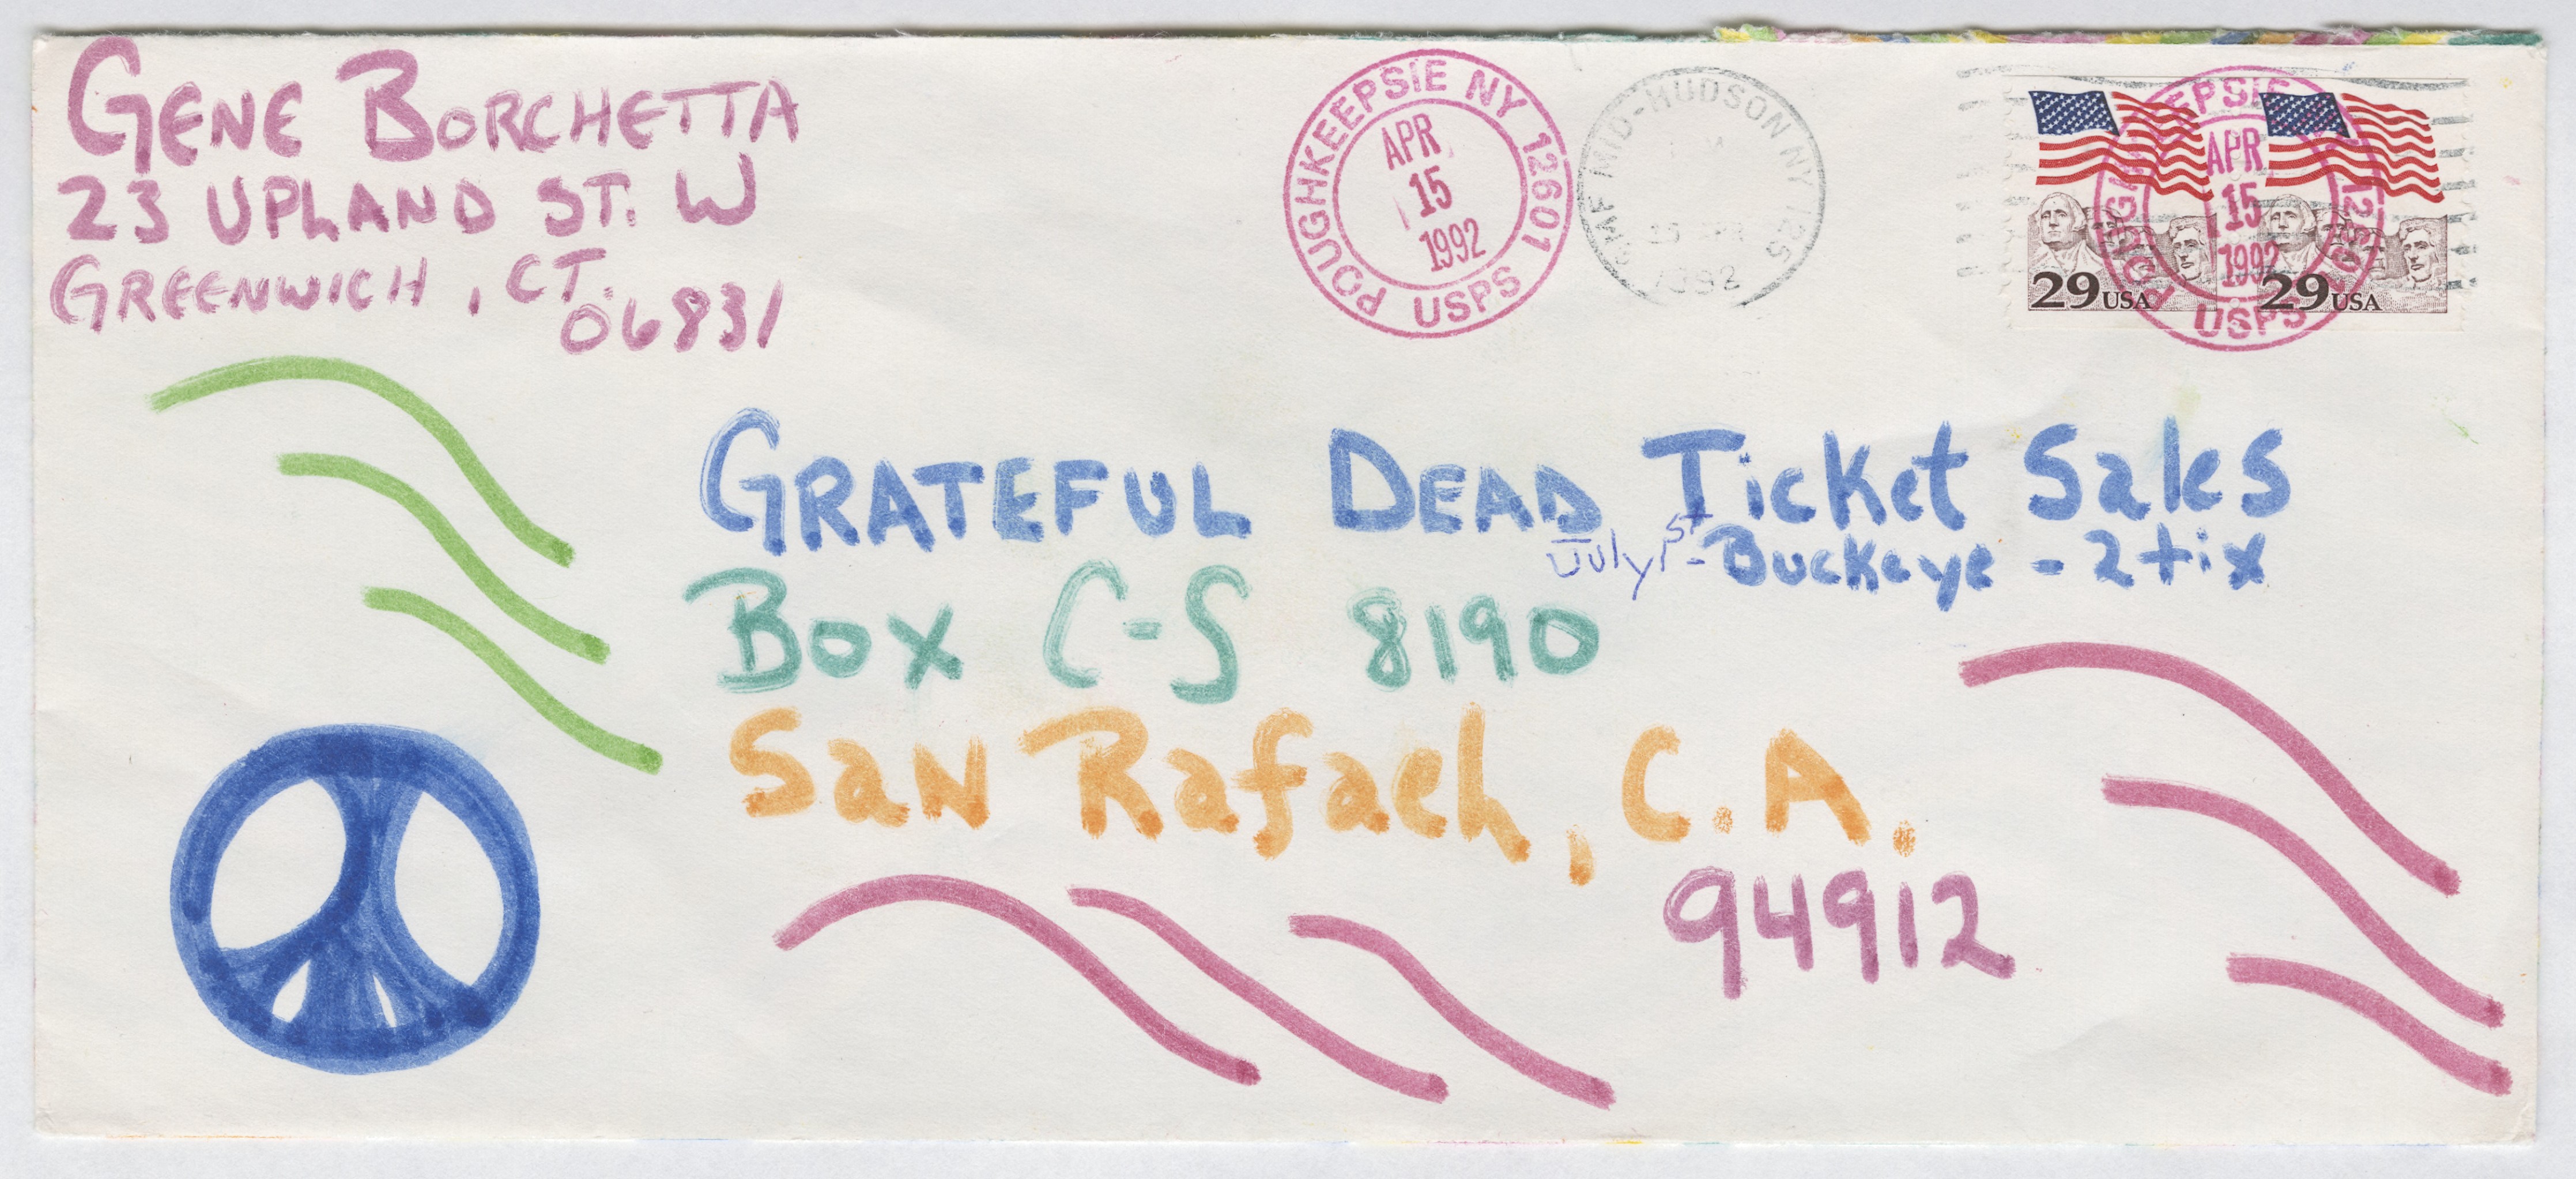 GENE BORCHETTA
23 UPLAND ST. W
GREENWICH, CT.
06831
POUGHKEEPSIE NY 12601
APR
15
1992
USPS
MID-HUDSON NY 125
1992
APR
15
1992
USPS
29 USA
29 USA
GRATEFUL DEAD Ticket Sales
July 1st - Buckeye - 2 tix
Box C-S 8190
San Rafael, C.A.
94912